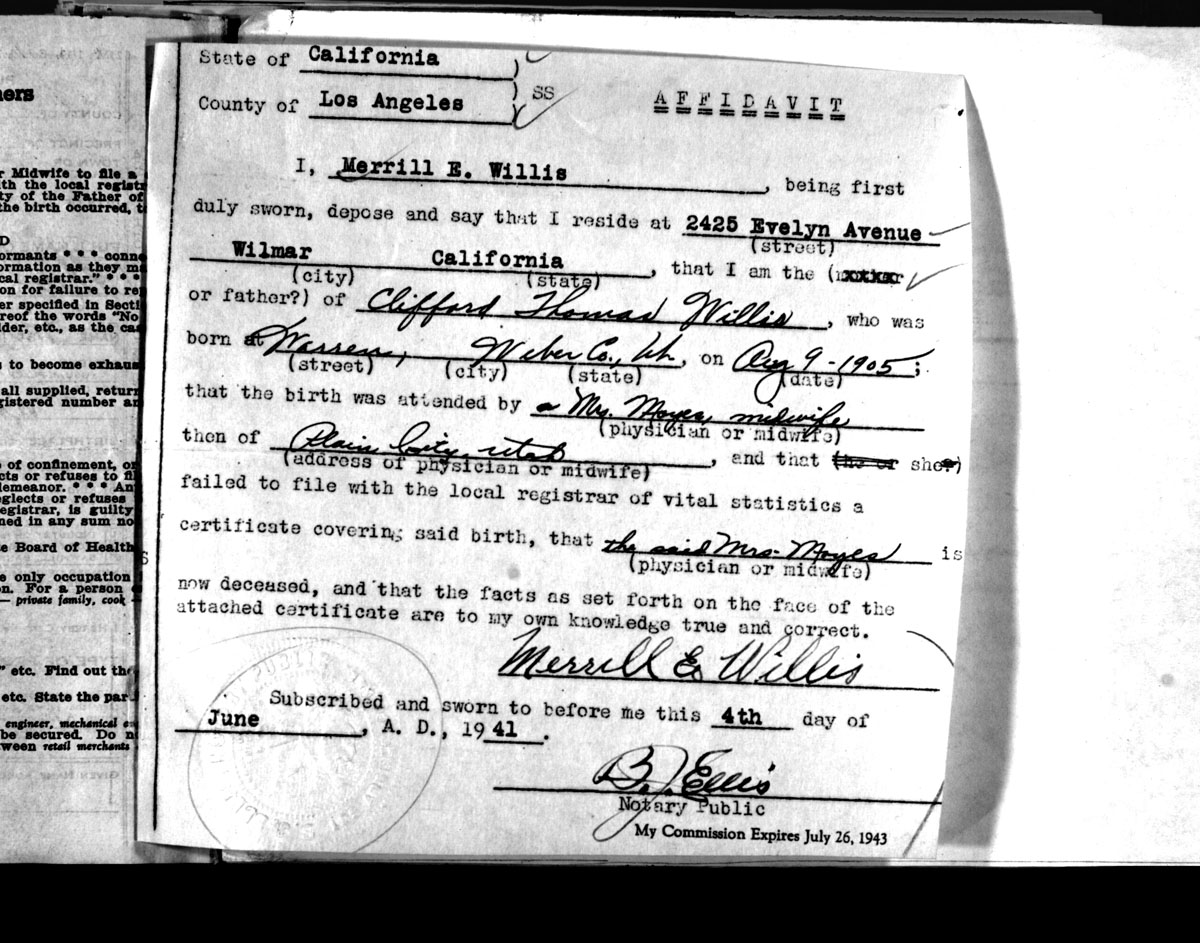 State of California )
) SS
County of Los Angeles )
AFFIDAVIT
I, Merrill E. Willis, being first
duly sworn, depose and say that I reside at 2425 Evelyn Avenue
(street)
Wilmar California, that I am the (xxxxxr
(city) (state)
or father?) of Clifford Thomas Willis, who was
born at Warren, Weber Co., Ut., on Aug 9 - 1905;
(street) (city) (state) (date)
that the birth was attended by a Mrs. Moyes, midwife
(physician or midwife)
then of Plain City, Utah, and that (he or she?)
(address of physician or midwife)
failed to file with the local registrar of vital statistics a
certificate covering said birth, that the said Mrs. Moyes is
(physician or midwife)
now deceased, and that the facts as set forth on the face of the
attached certificate are to my own knowledge true and correct.
Merrill E. Willis
Subscribed and sworn to before me this 4th day of
June, A. D., 1941.
B. J. Ellis
Notary Public
My Commission Expires July 26, 1943
ners
r Midwife to file a
ith the local registr
ty of the Father of
the birth occurred, t
D
ormants * * * conne
ormation as they ma
cal registrar." * * *
on for failure to re
er specified in Secti
reof the words "No
lder, etc., as the cas
s to become exhaus
all supplied, return
gistered number an
of confinement, or
cts or refuses to fi
demeanor. * * * An
eglects or refuses
egistrar, is guilty
ned in any sum no
e Board of Health
e only occupation
n. For a person
— private family, cook
" etc. Find out the
etc. State the par
engineer, mechanical e
be secured. Do n
ween retail merchants